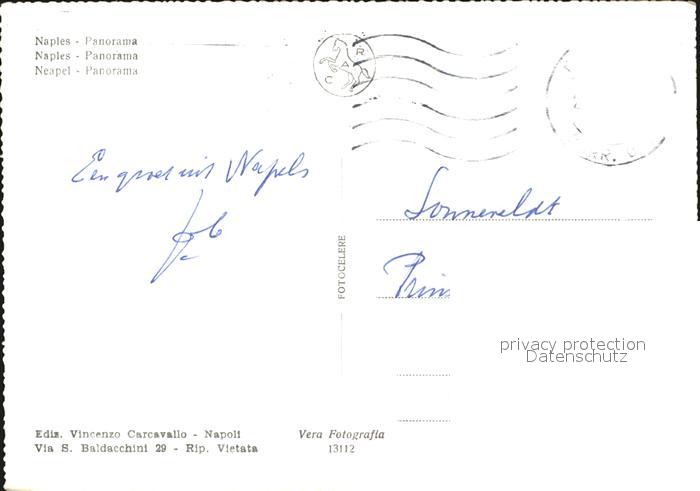 Naples - Panorama
Naples - Panorama
Neapel - Panorama
C A R D
Een groet uit Napels
Job
Sonneveldt
Prin
FOTOCELERE
privacy protection
Datenschutz
Ediz. Vincenzo Carcavallo - Napoli
Via S. Baldacchini 29 - Rip. Vietata
Vera Fotografia
13112